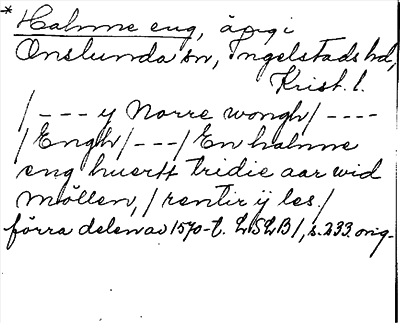 * Halmme eng, ägg i
Onslunda sn, Ingelstads hd,
Krist. l.
/--- y Norre wongh/----
/Engh/---/En halmme
eng huertt tridie aar wid
möllen, / rentir ij les./
förra delen av 1570-t. LSLB/, s. 233. orig.